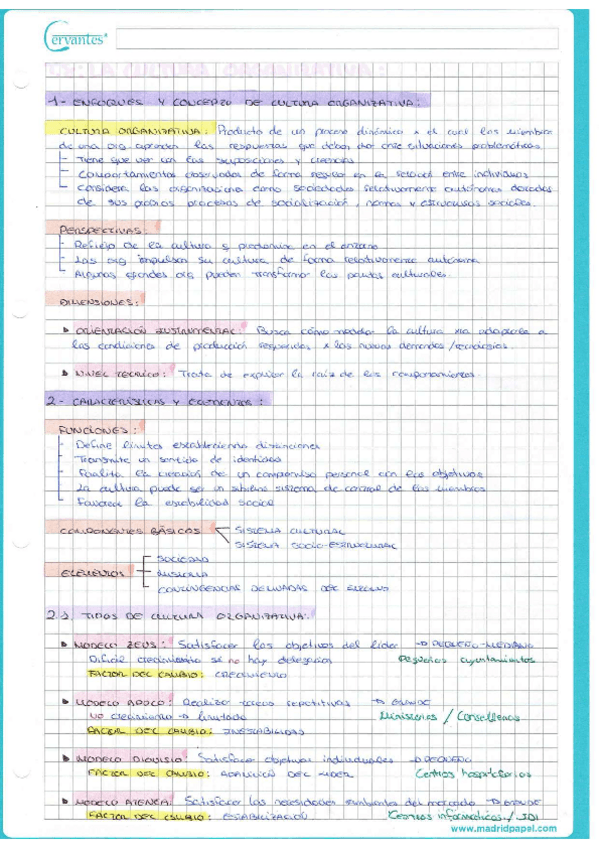 Cervantes
1- ENFOQUES Y CONCEPTO DE CULTURA ORGANIZATIVA:
CULTURA ORGANIZATIVA: Producto de un proceso dinámico x el cual los miembros
de una org aprenden las respuestas que deben dar ante situaciones problemáticas
Tiene que ver con las suposiciones y creencias
Comportamientos observados de forma regular en la relación entre individuos
Considera las organizaciones como sociedades relativamente autónomas dotadas
de sus propios procesos de socialización, normas y estructuras sociales.
PERSPECTIVAS:
Reflejo de la cultura q predomina en el entorno
Las org impulsan su cultura de forma relativamente autónoma
Algunas grandes org pueden transformar las pautas culturales.
DIMENSIONES:
ORIENTACIÓN INSTRUMENTAL: Busca cómo modelar la cultura xra adaptarse a
las condiciones de producción requeridas x las nuevas demandas/tecnologías.
NIVEL TÉCNICO: Trata de explicar la raíz de los comportamientos.
2- CARACTERÍSTICAS Y ELEMENTOS:
FUNCIONES:
Define límites estableciendo distinciones
Transmite un sentido de identidad
Facilita la creación de un compromiso personal con los objetivos
La cultura puede ser un sistema de control de los miembros
Favorece la estabilidad social
COMPONENTES BÁSICOS
SISTEMA CULTURAL
SISTEMA SOCIO-ESTRUCTURAL
ELEMENTOS
SOCIEDAD
HISTORIA
CONTINGENCIAS DERIVADAS DEL ENTORNO
2.1. TIPOS DE CULTURA ORGANIZATIVA:
MODELO ZEUS: Satisfacer los objetivos del líder → PEQUEÑO-MEDIANO
Difícil crecimiento si no hay delegación Pequeños ayuntamientos
FACTOR DEL CAMBIO: CRECIMIENTO
MODELO APOLO: Realizar tareas repetitivas → GRANDE
NO crecimiento → limitado Ministerios / Consellerias
FACTOR DEL CAMBIO: INESTABILIDAD
MODELO DIONISIO: Satisfacer objetivos individuales → PEQUEÑO
FACTOR DEL CAMBIO: DEL LÍDER Centros hospitalarios
MODELO ATENEA: Satisfacer las necesidades cambiantes del mercado → GRANDE
FACTOR DEL CAMBIO: ESTABILIZACIÓN Centros informáticos /
www.madridpapel.com